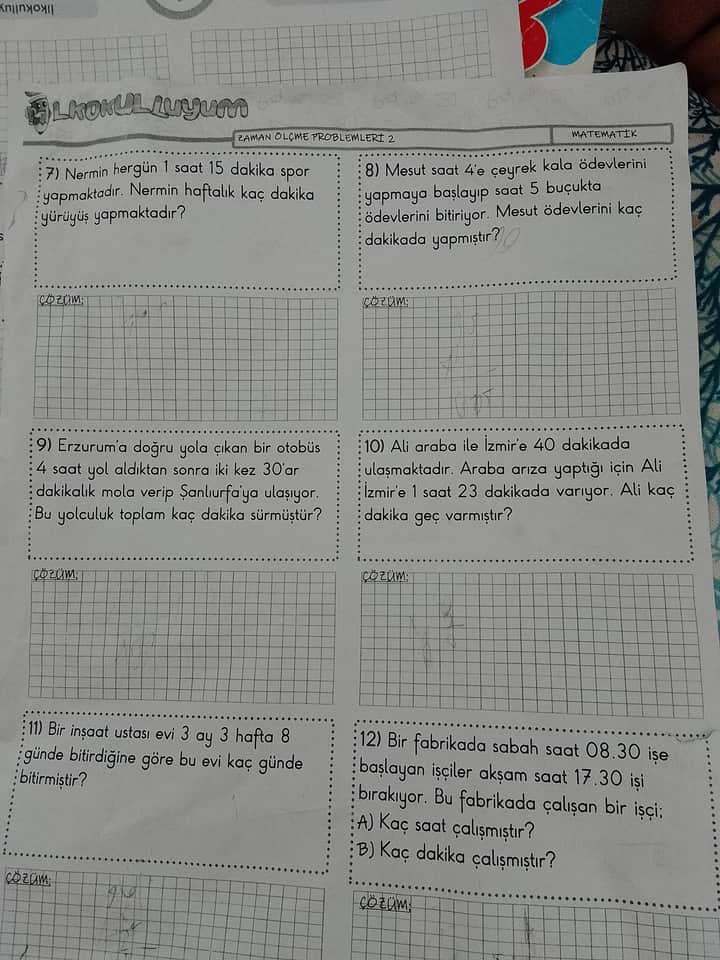 İlkokulluy
İLKOKULLUYUM
ZAMAN ÖLÇME PROBLEMLERİ 2
MATEMATİK
7) Nermin hergün 1 saat 15 dakika spor
yapmaktadır. Nermin haftalık kaç dakika
yürüyüş yapmaktadır?
ÇÖZÜM:
8) Mesut saat 4'e çeyrek kala ödevlerini
yapmaya başlayıp saat 5 buçukta
ödevlerini bitiriyor. Mesut ödevlerini kaç
dakikada yapmıştır?
ÇÖZÜM:
9) Erzurum'a doğru yola çıkan bir otobüs
4 saat yol aldıktan sonra iki kez 30'ar
dakikalık mola verip Şanlıurfa'ya ulaşıyor.
Bu yolculuk toplam kaç dakika sürmüştür?
ÇÖZÜM:
10) Ali araba ile İzmir'e 40 dakikada
ulaşmaktadır. Araba arıza yaptığı için Ali
İzmir'e 1 saat 23 dakikada varıyor. Ali kaç
dakika geç varmıştır?
ÇÖZÜM:
11) Bir inşaat ustası evi 3 ay 3 hafta 8
günde bitirdiğine göre bu evi kaç günde
bitirmiştir?
ÇÖZÜM:
12) Bir fabrikada sabah saat 08.30 işe
başlayan işçiler akşam saat 17.30 işi
bırakıyor. Bu fabrikada çalışan bir işçi;
A) Kaç saat çalışmıştır?
B) Kaç dakika çalışmıştır?
ÇÖZÜM: